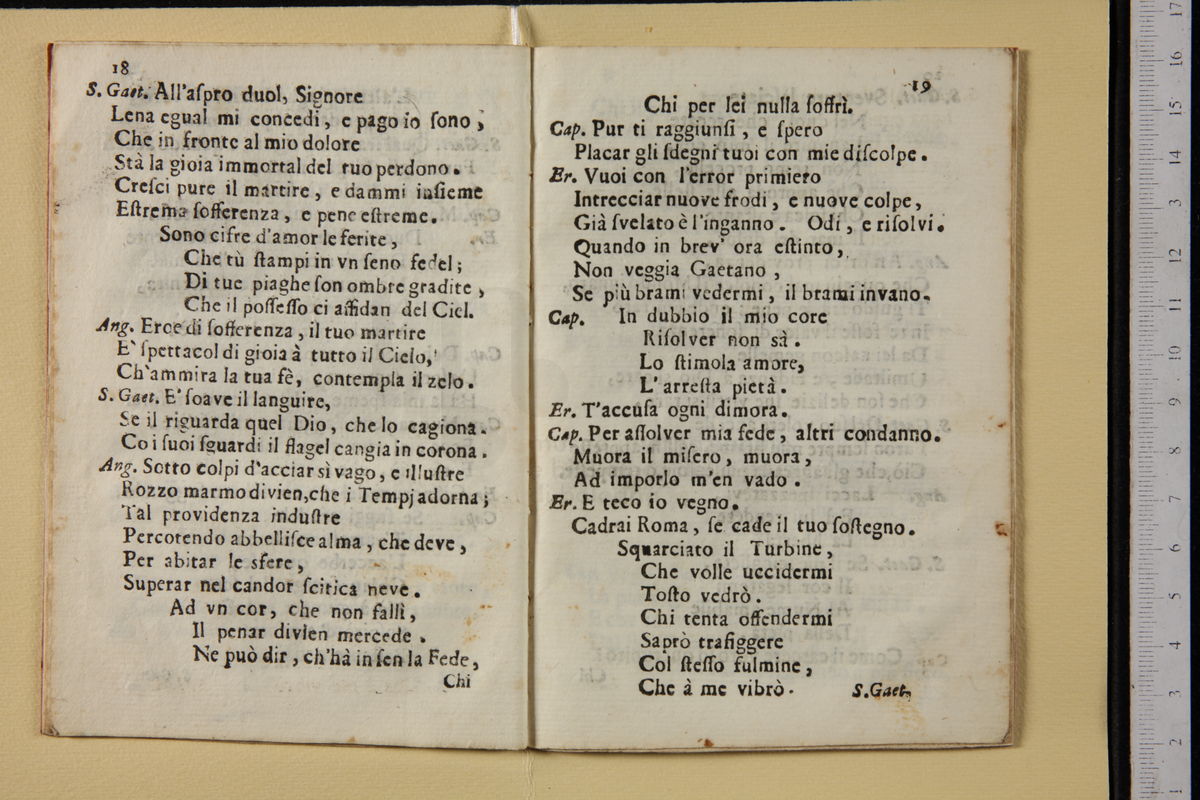 18
S. Gaet. All'aſpro duol, Signore
Lena egual mi concedi, e pago io ſono;
Che in fronte al mio dolore
Stà la gioia immortal del tuo perdono.
Creſci pure il martire, e dammi inſieme
Eſtrema ſofferenza, e pene eſtreme.
Sono cifre d'amor le ferite,
Che tù ſtampi in vn ſeno fedel;
Di tue piaghe ſon ombre gradite,
Che il poſſeſſo ci affidan del Ciel.
Ang. Erce di ſofferenza, il tuo martire
E' ſpettacol di gioia à tutto il Cielo,
Ch'ammira la tua fè, contempla il zelo.
S. Gaet. E' ſoave il languire,
Se il riguarda quel Dio, che lo cagiona.
Co i ſuoi ſguardi il flagel cangia in corona.
Ang. Sotto colpi d'acciar sì vago, e illuſtre
Rozzo marmo divien, che i Tempj adorna;
Tal providenza induſtre
Percotendo abbelliſce alma, che deve,
Per abitar le sfere,
Superar nel candor ſcitica neve.
Ad vn cor, che non fallì,
Il penar divien mercede.
Ne può dir, ch'hà in ſen la Fede,
Chi
19
Chi per lei nulla ſoffrì.
Cap. Pur ti raggiunſi, e ſpero
Placar gli ſdegni tuoi con mie diſcolpe.
Er. Vuoi con l'error primiero
Intrecciar nuove frodi, e nuove colpe,
Già ſvelato è l'inganno. Odi, e riſolvi.
Quando in brev' ora eſtinto,
Non veggia Gaetano,
Se più brami vedermi, il brami invano.
Cap. In dubbio il mio core
Riſolver non sà.
Lo ſtimola amore,
L' arreſta pietà.
Er. T'accuſa ogni dimora.
Cap. Per aſſolver mia fede, altri condanno.
Muora il miſero, muora,
Ad imporlo m'en vado.
Er. E teco io vegno.
Cadrai Roma, ſe cade il tuo ſoſtegno.
Squarciato il Turbine,
Che volle uccidermi
Toſto vedrò.
Chi tenta offendermi
Saprò trafiggere
Col ſteſſo fulmine,
Che à me vibrò.
S. Gaet.
17
16
15
14
13
12
11
10
9
8
7
6
5
4
3
2
1